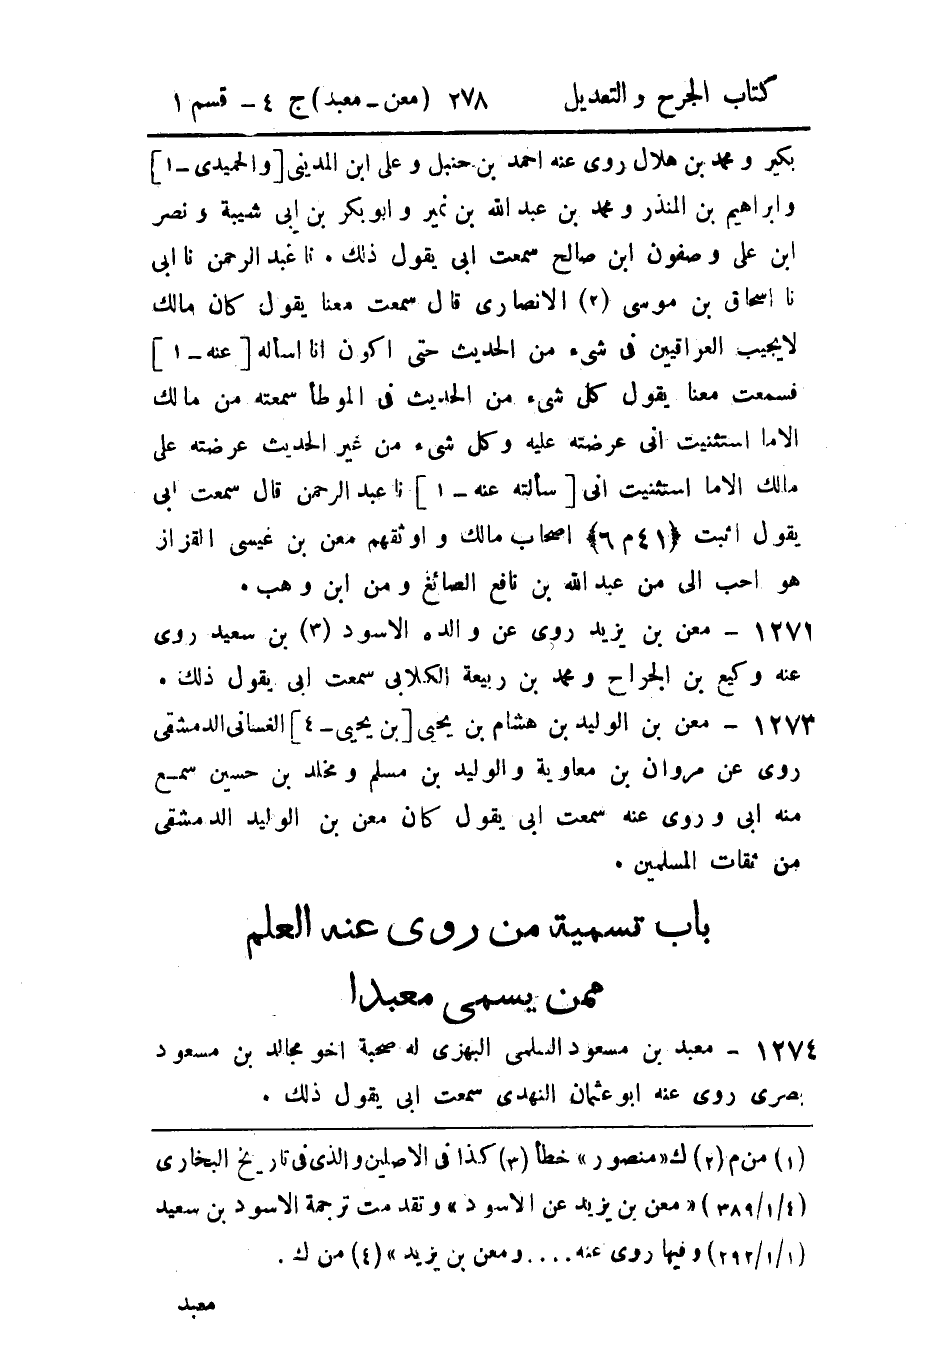 كتاب الجرح والتعديل ٢٧٨ (معن - معبد) ج ٤ - قسم ١
بكير و محمد بن هلال روى عنه احمد بن حنبل و على ابن المدينى [والحميدى - ١]
وابراهيم بن المنذر و محمد بن عبد الله بن نمير و ابوبكر بن ابى شيبة و نصر
ابن على و صفون ابن صالح سمعت ابى يقول ذلك . نا عبد الرحمن نا ابى
نا اسحاق بن موسى (٢) الانصارى قال سمعت معنا يقول كان مالك
لايجيب العراقيين فى شىء من الحديث حتى اكون انا اساله [عنه - ١]
فسمعت معنا يقول كل شىء من الحديث فى الموطأ سمعته من مالك
الاما استثنيت انى عرضته عليه وكل شىء من غير الحديث عرضته على
مالك الاما استثنيت انى [سألته عنه - ١] نا عبد الرحمن قال سمعت ابى
يقول اثبت ﴿٤١م ٦﴾ اصحاب مالك و اوثقهم معن بن عيسى القزاز
هو احب الى من عبد الله بن نافع الصائغ و من ابن وهب .
١٢٧١ - معن بن يزيد روى عن والده الاسود (٣) بن سعيد روى
عنه وكيع بن الجراح و محمد بن ربيعة الكلابى سمعت ابى يقول ذلك .
١٢٧٣ - معن بن الوليد بن هشام بن يحيى [بن يحيى - ٤] الغسانى الدمشقى
روى عن مروان بن معاوية والوليد بن مسلم و مخلد بن حسين سمع
منه ابى و روى عنه سمعت ابى يقول كان معن بن الوليد الدمشقى
من ثقات المسلمين .
باب تسمية من روى عنه العلم
ممن يسمى معبدا
١٢٧٤ - معبد بن مسعود السلمى البهزى له صحبة اخو مجالد بن مسعود
بصرى روى عنه ابوعثمان النهدى سمعت ابى يقول ذلك .
(١) من م (٢) ك «منصور» خطأ (٣) كذا فى الاصلين والذى فى تاريخ البخارى
(٣٨٩/١/٤) «معن بن يزيد عن الاسود» وتقدمت ترجمة الاسود بن سعيد
(٢٩٢/١/١) وفيها روى عنه .... ومعن بن يزيد» (٤) من ك .
معبد